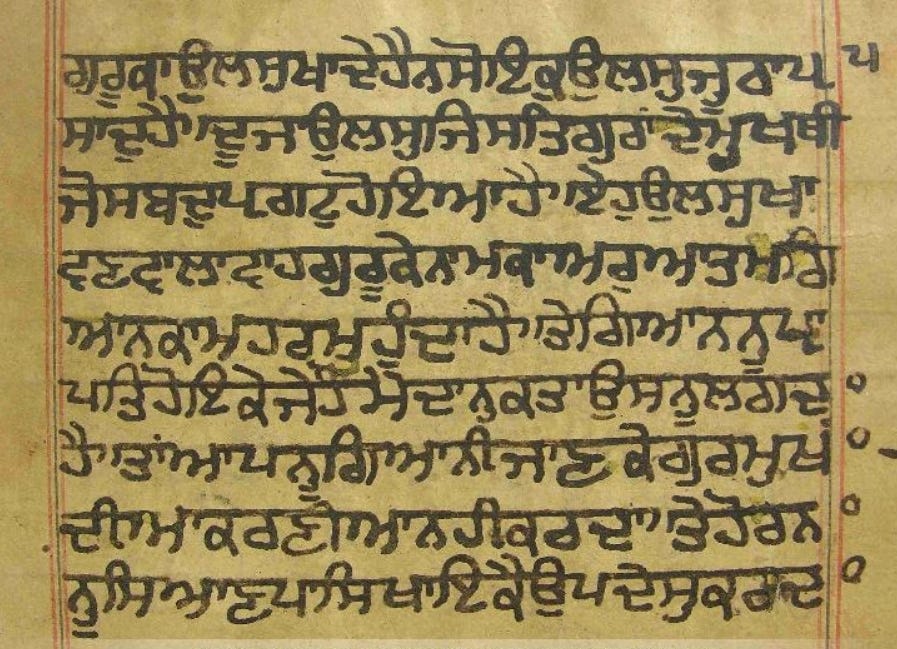 ਗੁਰੂਕਾਉਲਸੁਖਾਦੇਹੈਨਸੋਇਕੁਉਲਸੁਜੂਠਾਪ੍ਰ ਪ
ਸਾਦੁਹੈ।ਦੂਜਾਉਲਸੁਜਿਸਤਿਗੁਰਾਂਦੇਮੁਖਥੀ
ਜੋਸਬਦੁਪ੍ਰਗਟੁਹੋਇਆਹੈ।ਇਹੁਉਲਸੁਖਾ
ਵਣਵਾਲਾਵਾਹਗੁਰੂਕੇਨਾਮਕਾਅਰੁਆਤਮਗਿ
ਆਨਕਾਮਹਰਮੁਹੁੰਦਾਹੈ।ਤੇਗਿਆਨਨੂਪ੍ਰਾ
ਪਤਿਹੋਇਕੇਜੇਹਉਮੈਦਾਨੁਕਤਾਉਸਨੁਲਗਦਾ
ਹੈ।ਤਾਂਆਪਨੂਗਿਆਨੀਜਾਣਕੇਗੁਰਮੁਖਾਂ
ਦੀਆਕਰਣੀਆਨਹੀਕਰਦਾ।ਤੇਹੋਰਨਾ
ਨੂਸਿਆਣਪਸਿਖਾਇਕੈਉਪਦੇਸੁਕਰਦਾ